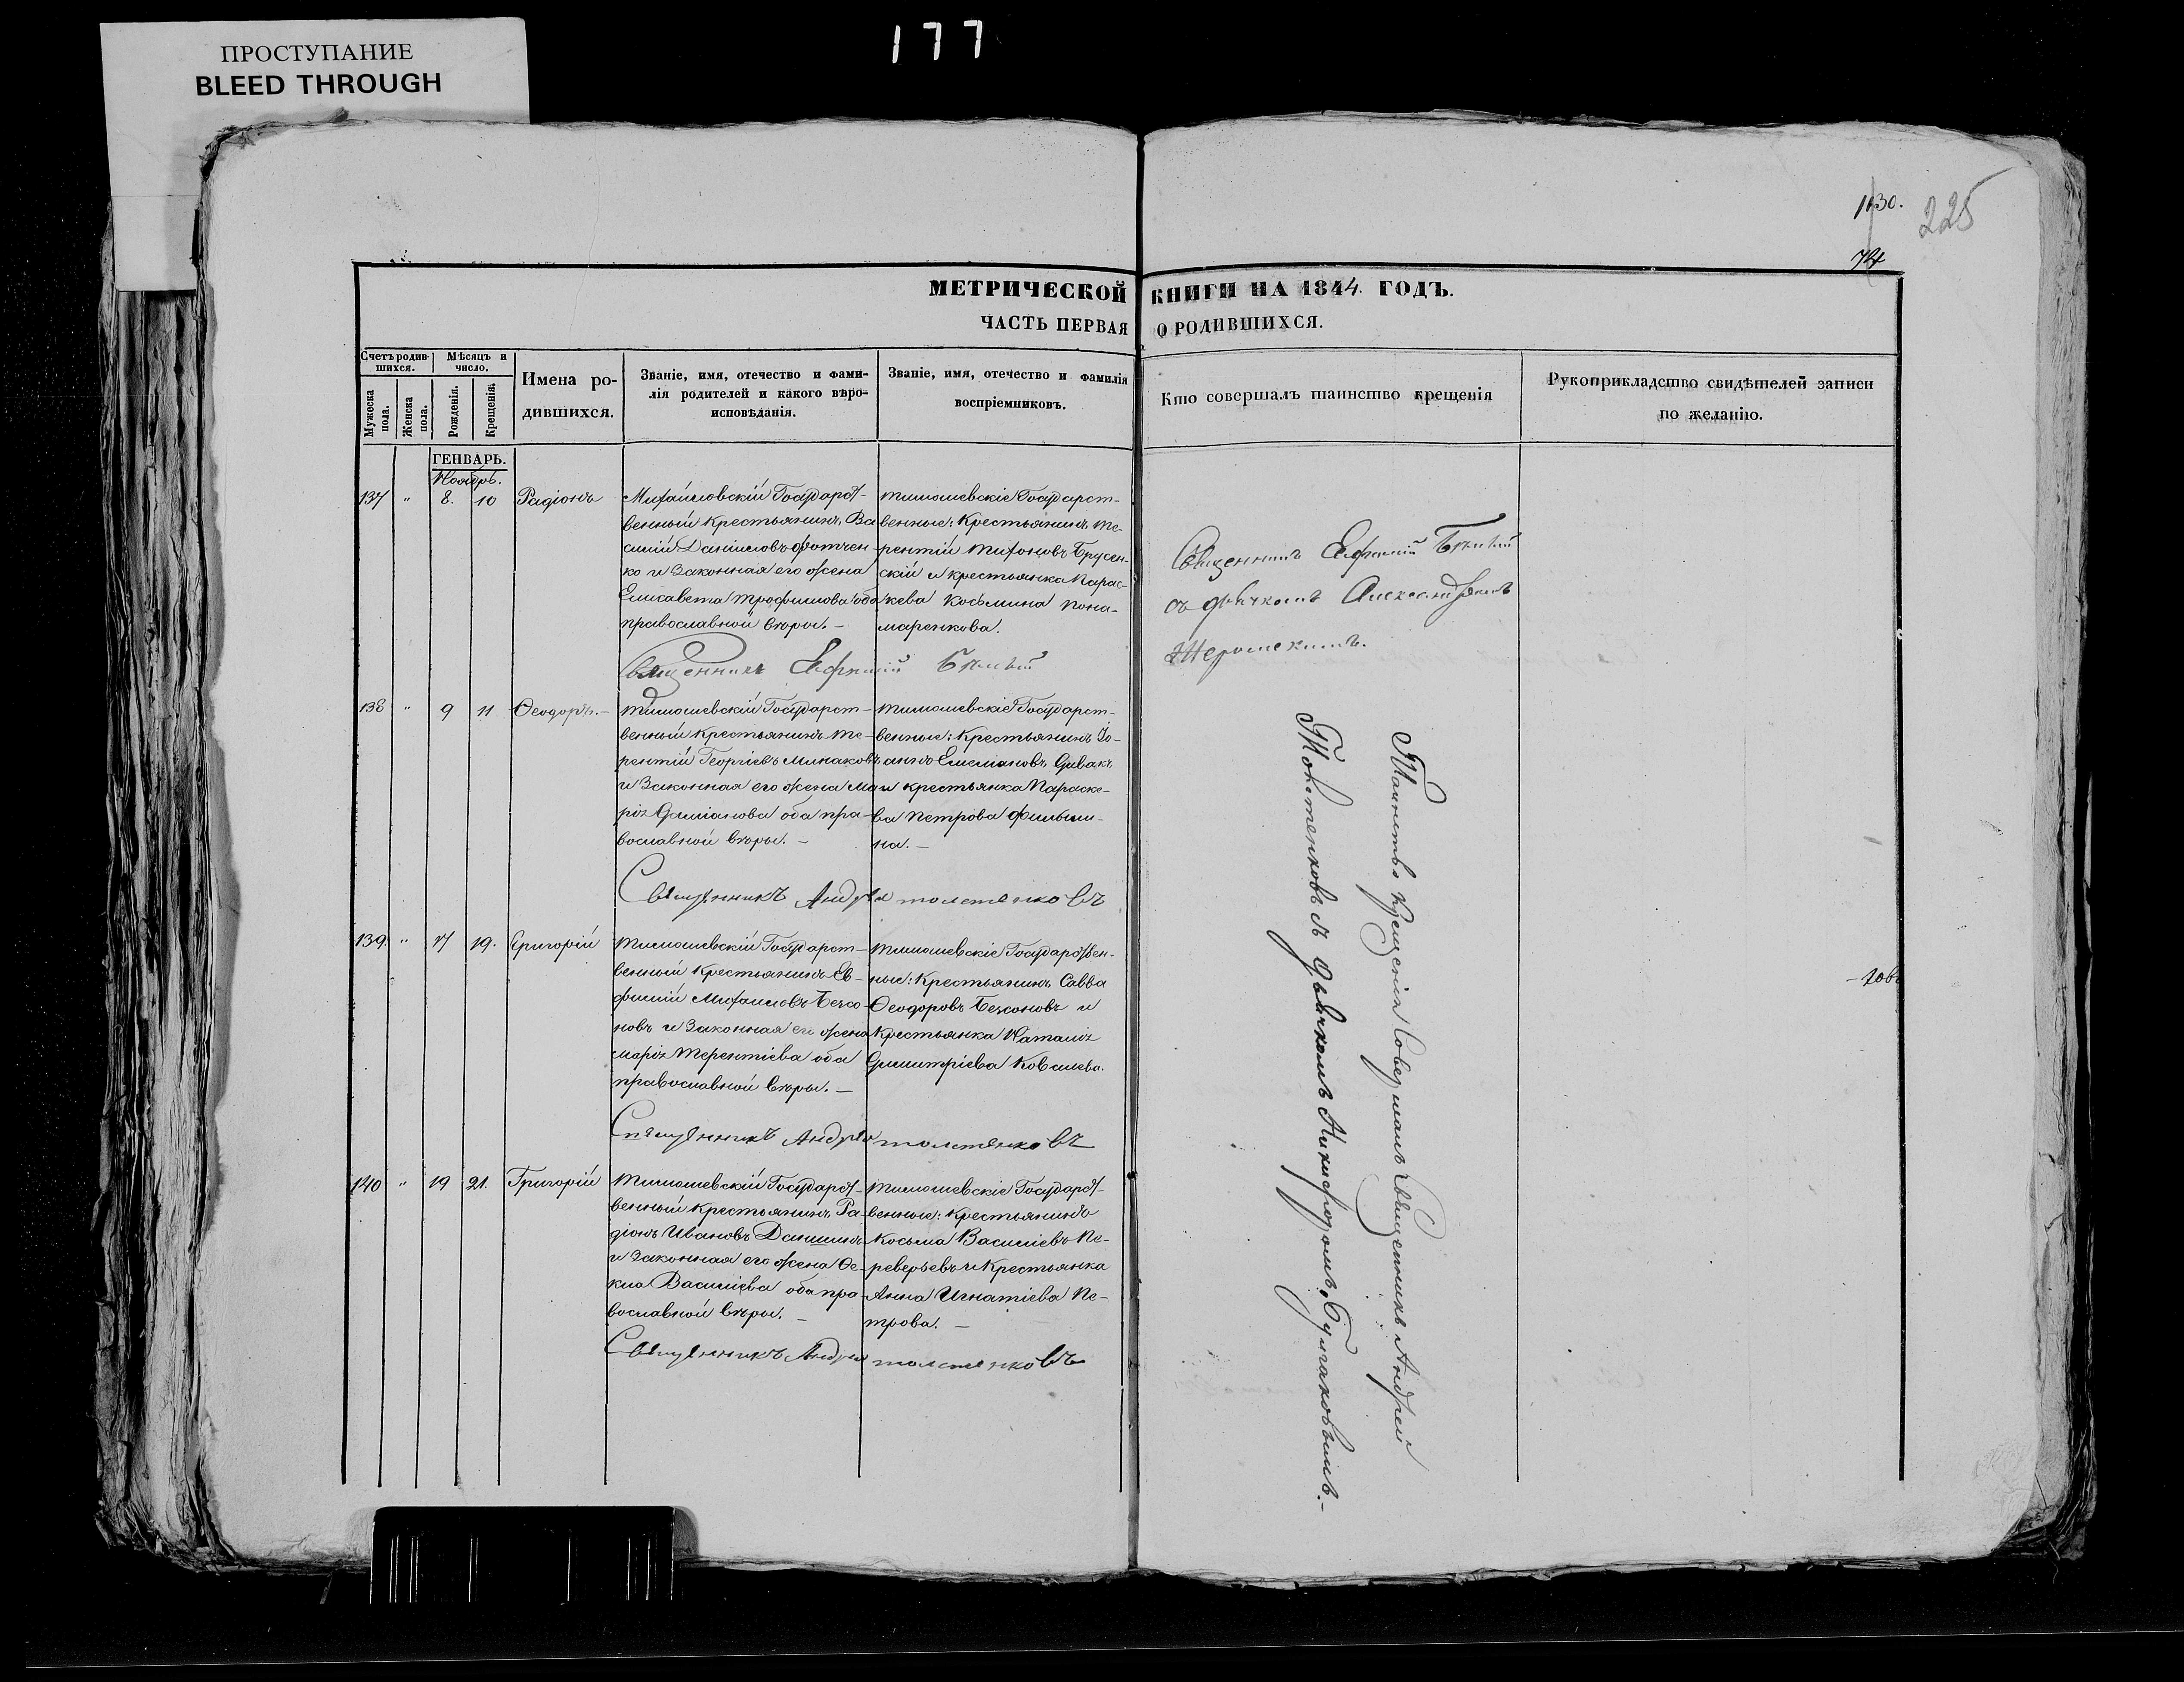 177
ПРОСТУПАНИЕ
BLEED THROUGH
1130.
225
74
МЕТРИЧЕСКОЙ КНИГИ НА 1844. ГОДЪ.
ЧАСТЬ ПЕРВАЯ О РОДИВШИХСЯ.
Счетъ родившихся.
Мужеска пола.
Женска пола.
Мѣсяцъ и число.
Рожденія.
Крещенія.
Имена родившихся.
Званіе, имя, отечество и фами-
лія родителей и какого вѣро-
исповѣданія.
Званіе, имя, отечество и фамилія
воспріемниковъ.
Кто совершалъ таинство крещенія
Рукоприкладство свидѣтелей записи
по желанію.
ГЕНВАРЬ.
Ноябрь.
137 " 8. 10 Радіонъ
Михайловскій Государст-
венный крестьянинъ Ва-
силій Даніиловъ
ко и Законная его жена
Елисавета Трофимова оба
православной вѣры. –
Тимошевскіе Государст-
венные: Крестьянинъ Те-
рентій Брусен-
скій и крестьянка Парас-
кева Косьмина Пона-
маренкова.
Священникъ Евфимій Бѣлый
Священникъ Евфимій Бѣлый
съ дьячкомъ Александромъ
138 " 9 11 Ѳеодоръ. –
Тимошевскій Государст-
венный крестьянинъ Те-
рентій Георгіевъ Минаковъ
и Законная его жена Ма-
рія Даміанова оба пра-
вославной вѣры. –
Тимошевскіе Государст-
венные: Крестьянинъ Іо-
аннъ Спивакъ
и крестьянка Параске-
ва Петрова
на. –
Священникъ Андрей Толстенковъ
139. " 17 19. Григорій
Тимошевскій Государст-
венный крестьянинъ Ев-
фимій Михаиловъ Бехсо-
новъ и Законная его жена
Марія Терентіева оба
православной вѣры. –
Тимошевскіе Государствен-
ные: Крестьянинъ Савва
Ѳеодоровъ Бехсоновъ и
Крестьянка Наталія
Димитріева Ковалева.
Священникъ Андрей Толстенковъ
140 " 19 21. Григорій
Тимошевскій Государст-
венный крестьянинъ Ра-
діонъ Ивановъ Даншинъ
и Законная его жена Ѳе-
кла Василіева оба пра-
вославной вѣры. –
Тимошевскіе Государст-
венные: крестьянинъ
Косьма Василіевъ Пе-
реверзевъ и Крестьянка
Анна Игнатіева Пе-
трова. –
Священникъ Андрей Толстенковъ
Таинство Крещенія Совершалъ Священникъ Андрей
Толстенковъ съ Дьячкомъ Никифоромъ Булгаковымъ. –